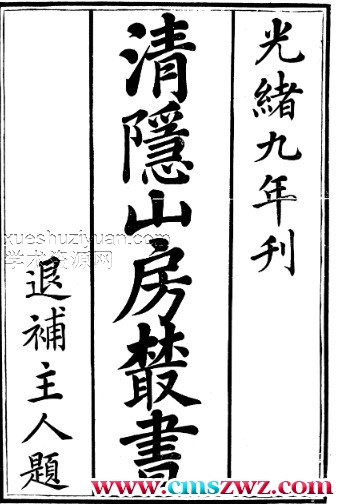 光緒九年刊
清隱山房叢書
退補主人題
xueshuziyuan.com
学术资源网
www.cmszwz.com